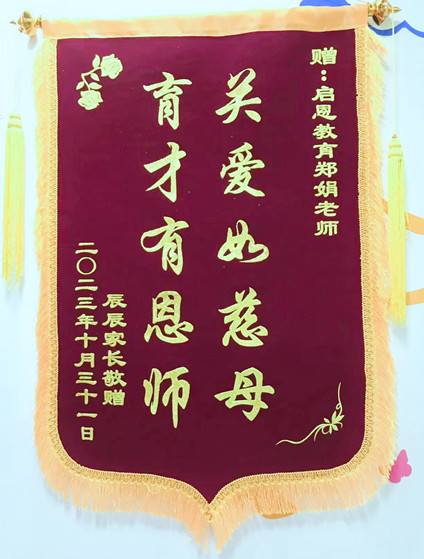 赠：启恩教育郑娟老师
关爱如慈母
育才有恩师
辰辰家长敬赠
二〇二三年十月三十一日